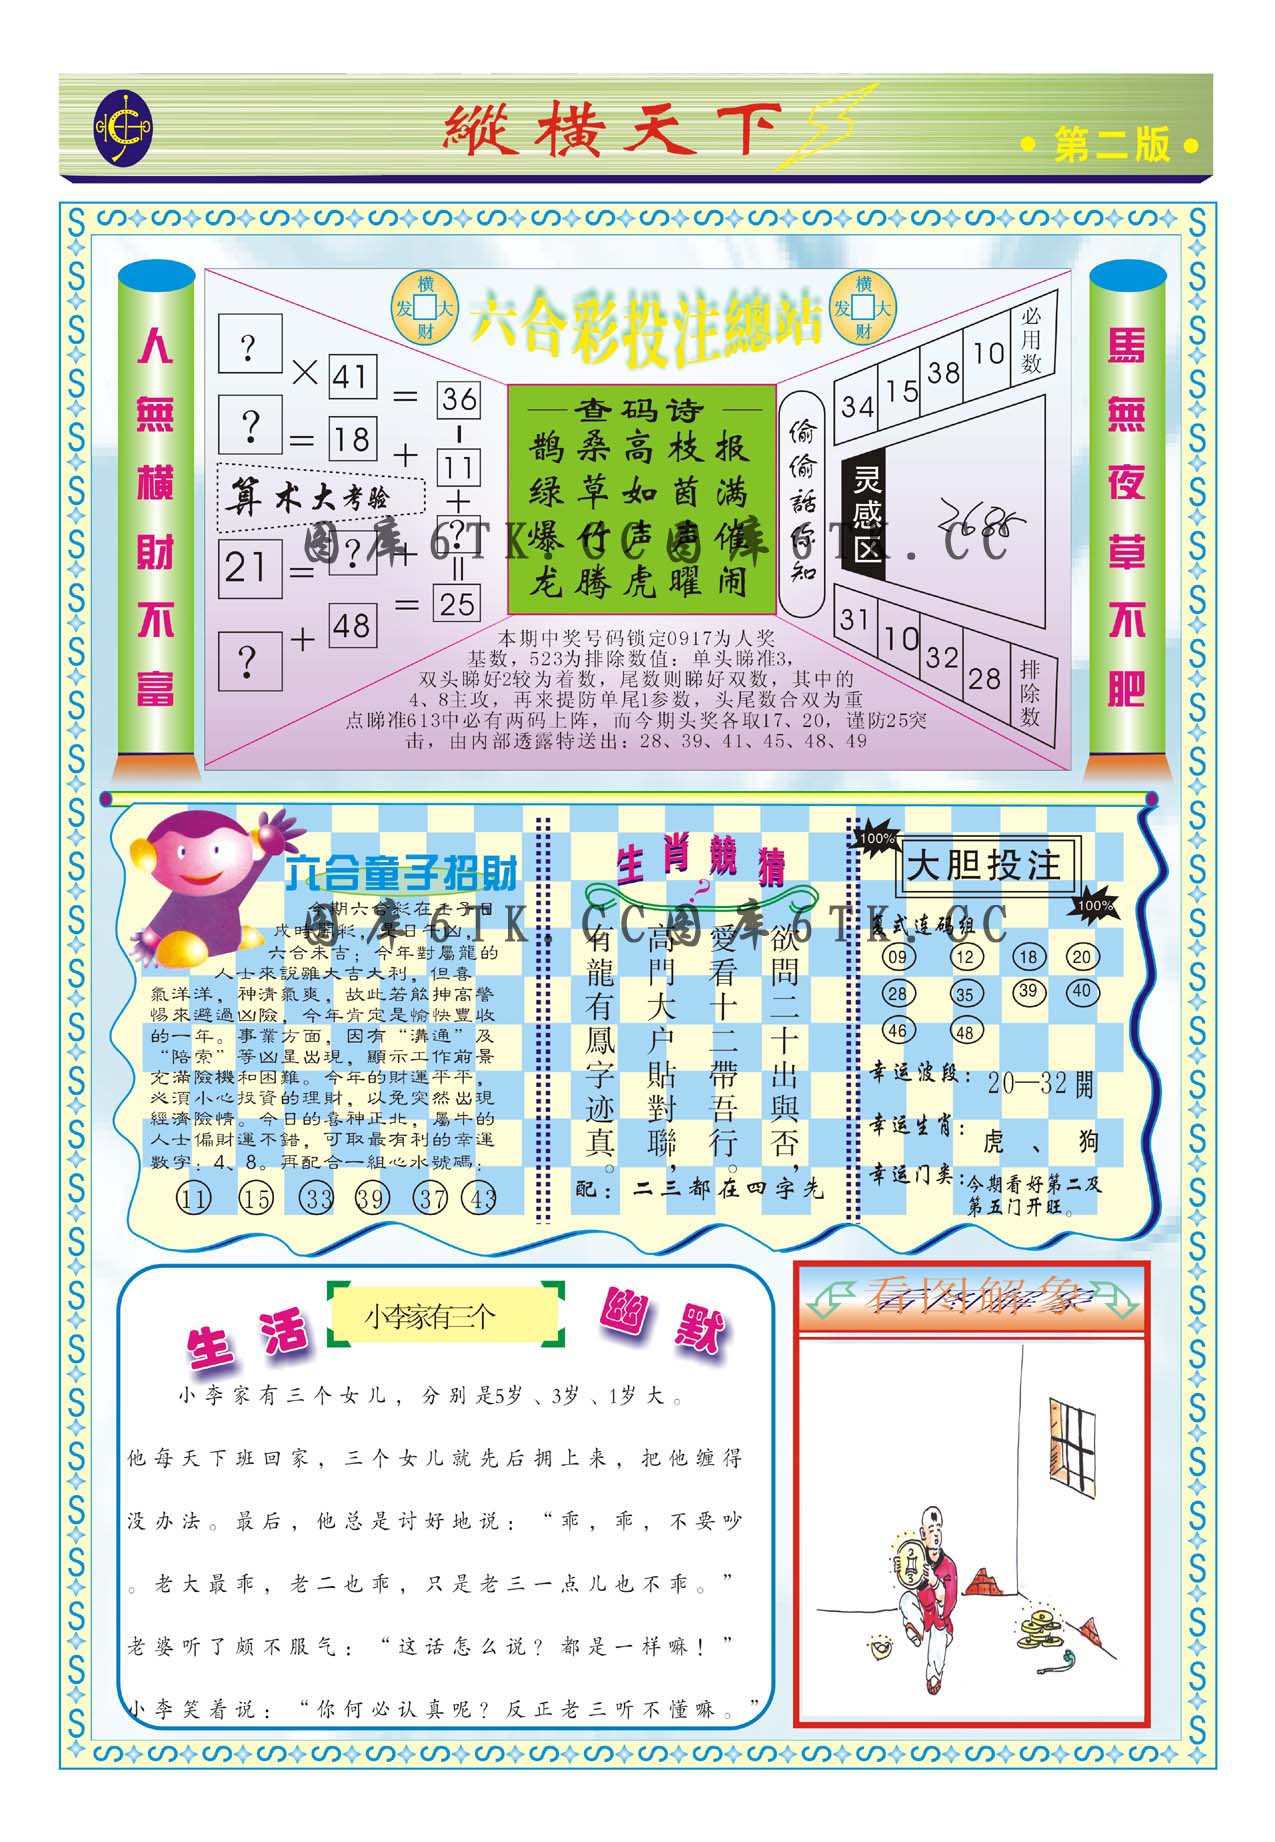 縱橫天下
·第二版·
人無橫財不富
馬無夜草不肥
橫
发 大
财
六合彩投注總站
橫
发 大
财
? × 41 = 36
? = 18 + 11
算术大考验
21 = ? + ?
? + 48 = 25
查码诗
鹊桑高枝报
绿草如茵满
爆竹声声催
龙腾虎曜闹
偷偷話你知
34 15 38 10 必用数
灵感区
31 10 32 28 排除数
本期中奖号码锁定0917为人奖
基数，523为排除数值：单头睇准3，
双头睇好2较为着数，尾数则睇好双数，其中的
4、8主攻，再来提防单尾1参数，头尾数合双为重
点睇准613中必有两码上阵，而今期头奖各取17、20，谨防25突
击，由内部透露特送出：28、39、41、45、48、49
图库6TK.CC图库6TK.CC
六合童子招財
今期六合彩在壬子日
戌時開彩，是日午凶，
六合未吉；今年對屬龍的
人士來說雖大吉大利，但喜
氣洋洋，神清氣爽，故此若能抻高警
惕來避過凶險，今年肯定是愉快豐收
的一年。事業方面，因有“溝通”及
“陪索”等凶星出現，顯示工作前景
充滿險機和困難。今年的財運平平，
必須小心投資的理財，以免突然出現
經濟險情。今日的喜神正北，屬牛的
人士偏財運不錯，可取最有利的幸運
數字：4、8。再配合一組心水號碼：
11 15 33 39 37 43
生肖競猜
?
欲問二十出與否，
愛看十二帶吾行。
高門大户貼對聯，
有龍有鳳字迹真。
配：二三都在四字先
图库6TK.CC图库6TK.CC
100%
大胆投注
100%
复式连码组
09 12 18 20
28 35 39 40
46 48
幸运波段：20—32開
幸运生肖：虎、狗
幸运门类：今期看好第二及
第五门开旺。
生活
小李家有三个
幽默
小李家有三个女儿，分别是5岁、3岁、1岁大。
他每天下班回家，三个女儿就先后拥上来，把他缠得
没办法。最后，他总是讨好地说：“乖，乖，不要吵
。老大最乖，老二也乖，只是老三一点儿也不乖。”
老婆听了颇不服气：“这话怎么说？都是一样嘛！”
小李笑着说：“你何必认真呢？反正老三听不懂嘛。”
看图解象